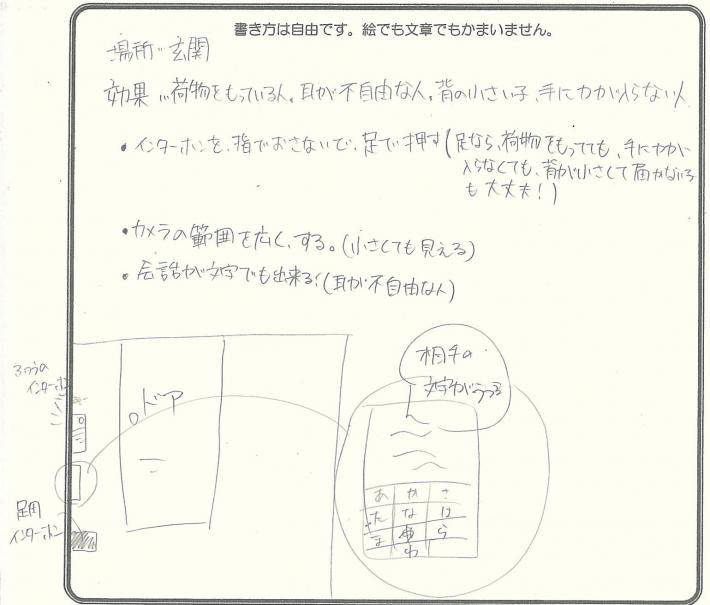 書き方は自由です。絵でも文章でもかまいません。
場所…玄関
効果…荷物をもっている人。耳が不自由な人。背の小さい子、手に力が入らない人
・インターホンを、指でおさないで、足で押す(足なら、荷物をもってても、手に力が
入らなくても、背が小さくて届かない子
も大丈夫!)
・カメラの範囲を広く、する。(小さくても見える)
・会話が文字でも出来る!(耳が不自由な人)
相手の
文字がうつる
ふつうの
インターホン
ドア
足用
インターホン
あ か さ
た な は
ま や ら
わ